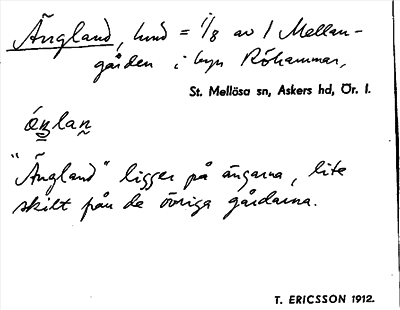 Ängland, hmd = 1/8 av 1 Mellan-
gården i byn Röhammar,
St. Mellösa sn, Askers hd, Ör. l.
óŋlan
"Ängland" ligger på ängarna, lite
skilt från de övriga gårdarna.
T. ERICSSON 1912.